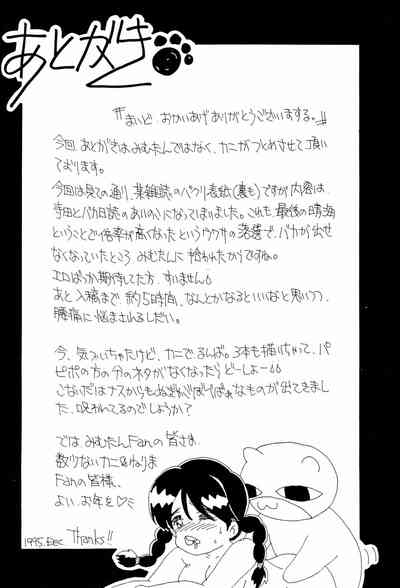 あとがき
〃まいど、おかいあげありがとうございまする。〃
今回、あとがきはみむたんではなく、カニがつとめさせて頂い
ております。
今回は見ての通り、某雑誌のパクリ表紙(裏も)ですが内容は、
寺田とバカ日誌のあいのこになってまいました。これも、最後の晴海
ということで倍率が高くなったというウワサの落選で、バカが出せ
なくなっていたところ、みむたんに拾われたからですね。
エロばっか期待してた方、すいません。
あと入稿まで、約5時間、なんとかなるといいなと思いつつ、
腰痛に悩まされるしだい。
今、気づいちゃたけど、カニでるんば。3本も描いちゃって、パ
ピポの方の分のネタがなくなったら ど〜しよ〜
こないだはナスからも
なものが出てきまし
た、呪われてるのでしょうか?
では みむたんFanの皆さま、
数少ないカニ&ねりま
Fanの皆様、
よい、お年を♡ミ
1995.DEC Thanks!!